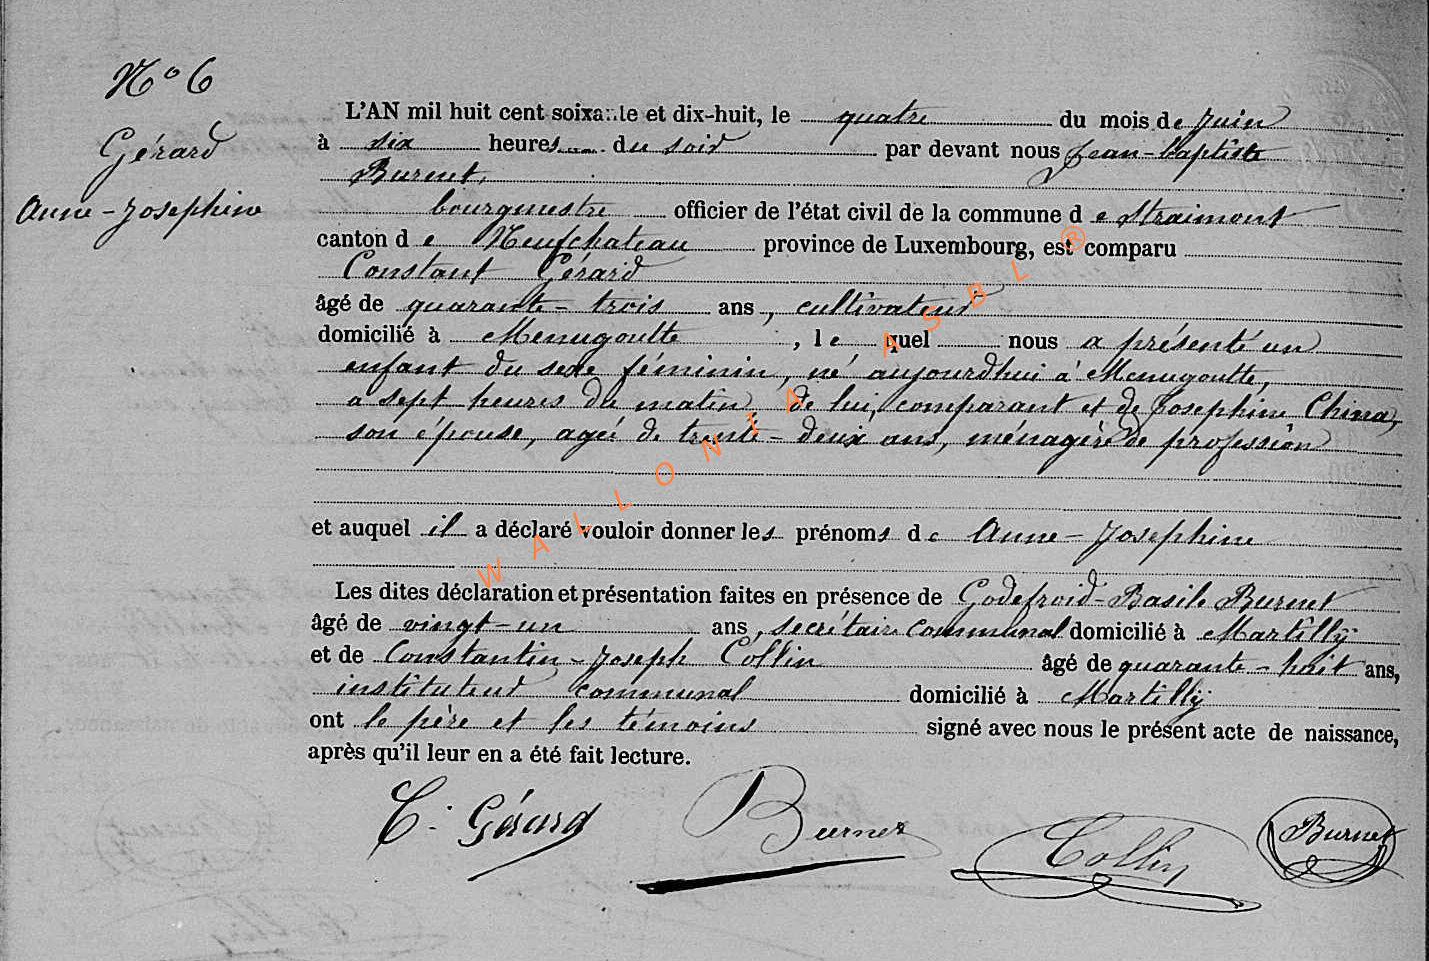 N° 6
Gérard
Anne-Josephine
L'AN mil huit cent soixante et dix-huit, le quatre du mois de Juin
à six heures du soir par devant nous Jean-baptiste
Burnet,
bourgmestre officier de l'état civil de la commune de Straimont
canton de Neufchateau province de Luxembourg, est comparu
Constant Gérard
âgé de quarante-trois ans, cultivateur
domicilié à Menugoutte, lequel nous a présenté un
enfant du sexe féminin, né aujourdhui à Menugoutte,
a sept heures du matin, de lui, comparant et de Josephine China,
son épouse, agée de trente-deux ans, ménagère de profession
et auquel il a déclaré vouloir donner les prénoms de Anne-Josephine
Les dites déclaration et présentation faites en présence de Godefroid-Basile Burnet
âgé de vingt-un ans, secrétaire communal domicilié à Martilly
et de Constantin-Joseph Collin âgé de quarante-huit ans,
instituteur communal domicilié à Martilly
ont le père et les témoins signé avec nous le présent acte de naissance,
après qu'il leur en a été fait lecture.
C. Gérard Burnet Collin Burnet
WALLONIA ASBL ®